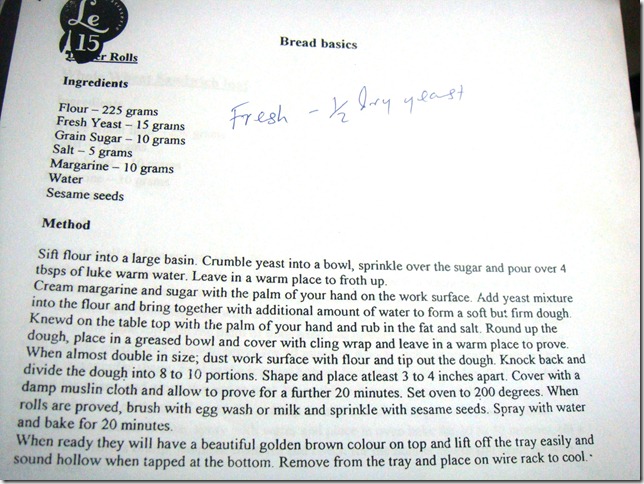 Le
15
Bread basics
er Rolls
Ingredients
Flour – 225 grams
Fresh Yeast – 15 grams
Grain Sugar – 10 grams
Salt – 5 grams
Margarine – 10 grams
Water
Sesame seeds
Fresh - 1/2 dry yeast
Method
Sift flour into a large basin. Crumble yeast into a bowl, sprinkle over the sugar and pour over 4
tbsps of luke warm water. Leave in a warm place to froth up.
Cream margarine and sugar with the palm of your hand on the work surface. Add yeast mixture
into the flour and bring together with additional amount of water to form a soft but firm dough.
Knewd on the table top with the palm of your hand and rub in the fat and salt. Round up the
dough, place in a greased bowl and cover with cling wrap and leave in a warm place to prove.
When almost double in size; dust work surface with flour and tip out the dough. Knock back and
divide the dough into 8 to 10 portions. Shape and place atleast 3 to 4 inches apart. Cover with a
damp muslin cloth and allow to prove for a further 20 minutes. Set oven to 200 degrees. When
rolls are proved, brush with egg wash or milk and sprinkle with sesame seeds. Spray with water
and bake for 20 minutes.
When ready they will have a beautiful golden brown colour on top and lift off the tray easily and
sound hollow when tapped at the bottom. Remove from the tray and place on wire rack to cool.